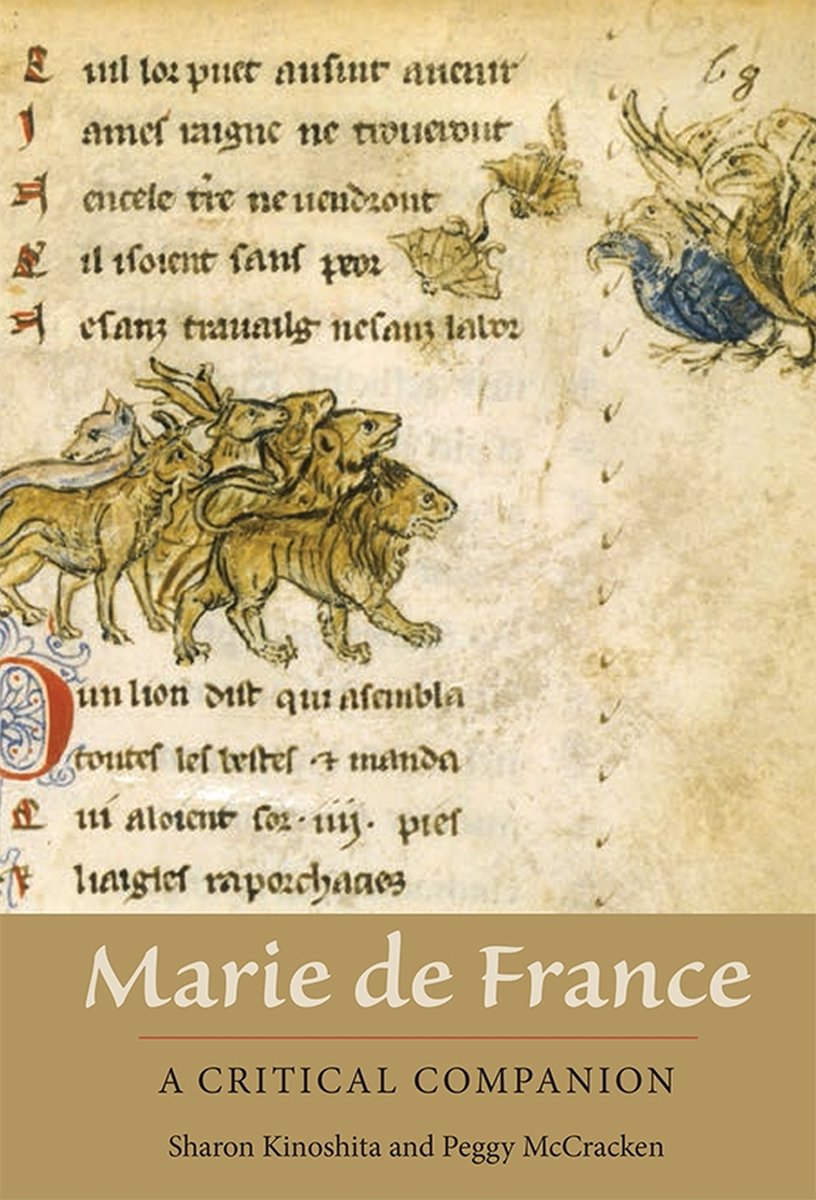 uil lor puet ausint auenir
ames ne troueront
N encele tre ne uendront
il isoient sans peor
N esanz trauailg nesanz labor
Dun lion dist qui asembla
toutes les bestes ⁊ manda
ui aloient sor · iiij · pies
liaigles
Marie de France
A CRITICAL COMPANION
Sharon Kinoshita and Peggy McCracken